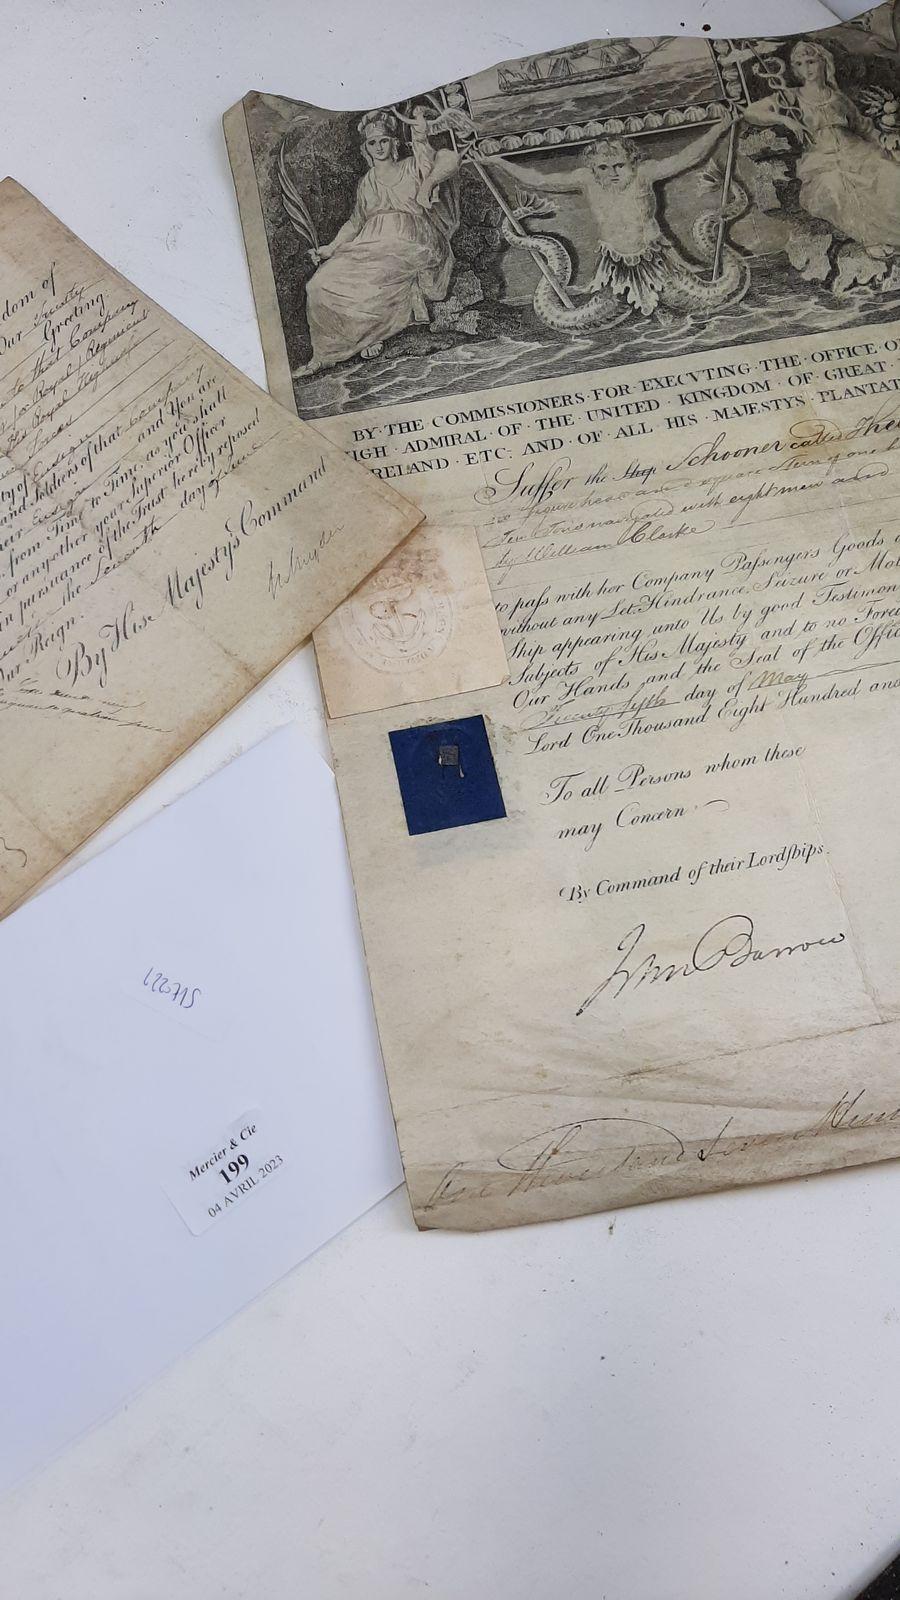 dom of
Our Trusty
Greeting
to that Company
Royal Regiment
His Royal Highness
ty of
and Soldiers of that Company
from Time to Time, as you shall
and You are
or any other your Superior Officer
in pursuance of the Trust hereby reposed
the Seventh day of June
Our Reign.
By His Majesty's Command
BY·THE COMMISSIONERS·FOR·EXECVTING·THE·OFFICE·O
IGH·ADMIRAL·OF·THE·UNITED·KINGDOM·OF·GREAT
RELAND·ETC: AND·OF·ALL·HIS·MAJESTYS·PLANTAT
Suffer the Ship Schooner called The
no figure head and a square Stern of one
Ten Tons navigated with eight men and
by William Clarke
to paſs with her Company Paſsengers Goods
without any Let, Hindrance, Seizure or Mol
Ship appearing unto Us by good Testimon
Subjects of His Majesty and to no Forei
Our Hands and the Seal of the Offic
Twenty fifth day of May
Lord One Thousand Eight Hundred and
To all Persons whom these
may Concern
By Command of their Lordſhips.
John Barrow
One Thousand Seven Hun
517221
Mercier & Cie
199
04 AVRIL 2023